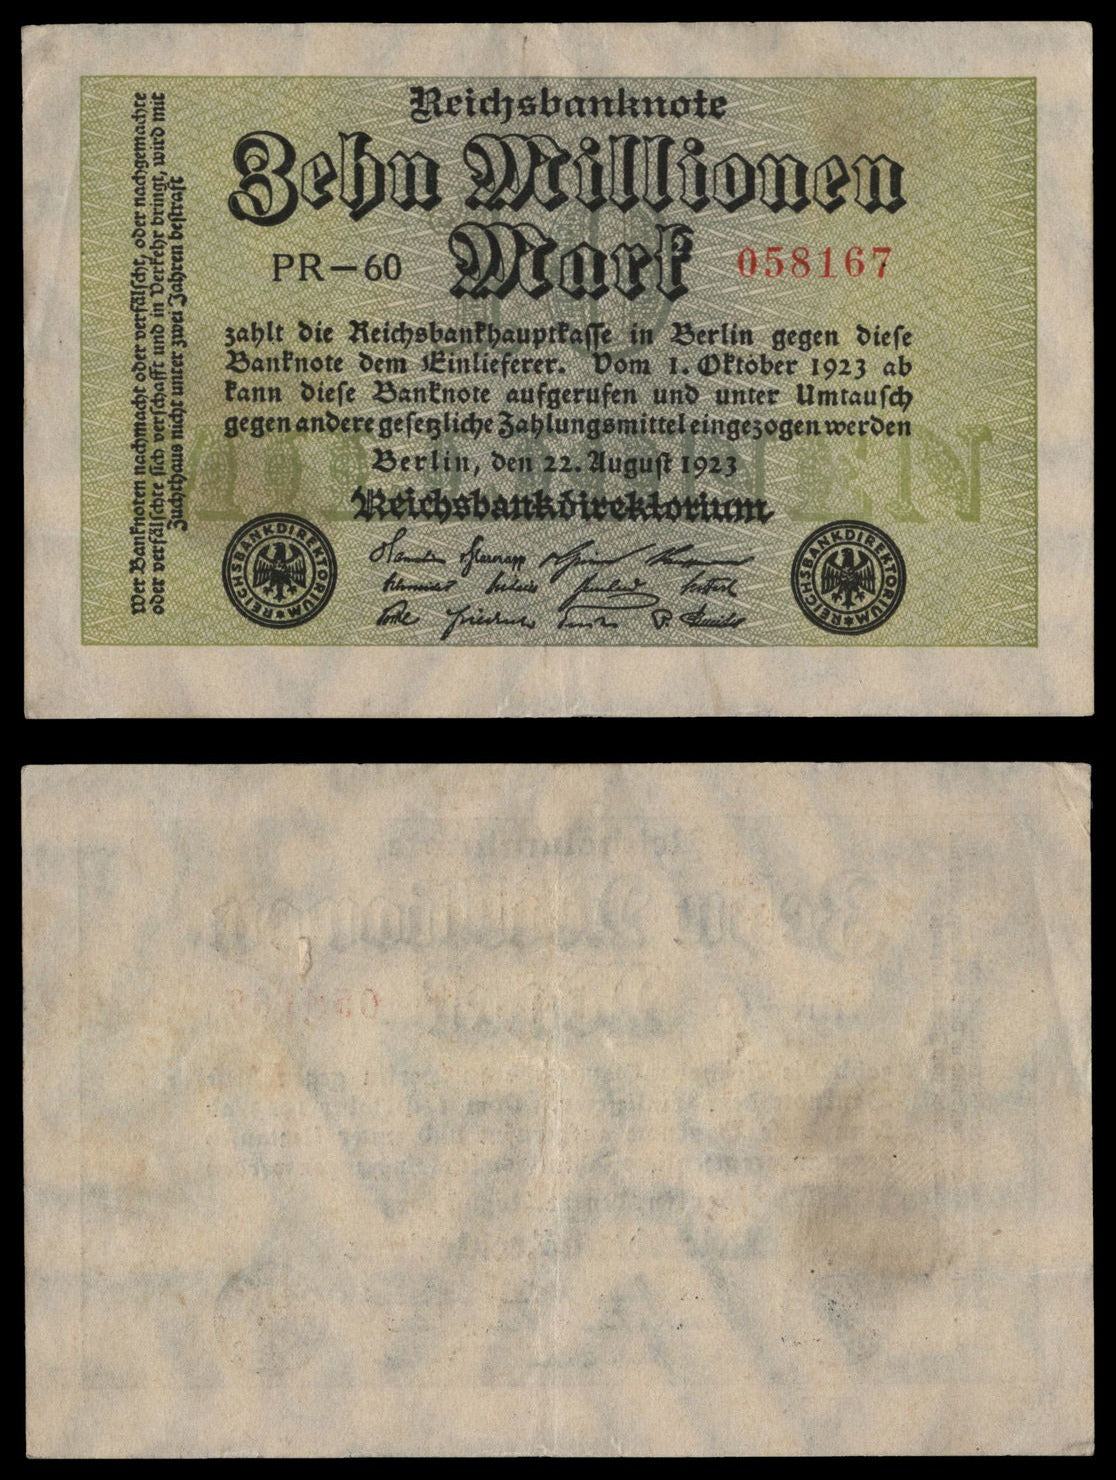 Reichsbanknote
Zehn Millionen
Mark
PR–60
058167
zahlt die Reichsbankhauptkasse in Berlin gegen diese
Banknote dem Einlieferer. Vom 1. Oktober 1923 ab
kann diese Banknote aufgerufen und unter Umtausch
gegen andere gesetzliche Zahlungsmittel eingezogen werden
Berlin, den 22. August 1923
Reichsbankdirektorium
REICHSBANKDIREKTORIUM
REICHSBANKDIREKTORIUM
Wer Banknoten nachmacht oder verfälscht, oder nachgemachte
oder verfälschte sich verschafft und in Verkehr bringt, wird mit
Zuchthaus nicht unter zwei Jahren bestraft